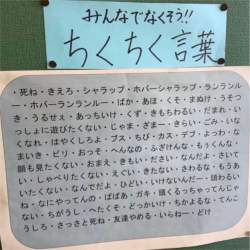 みんなでなくそう!!
ちくちく言葉
・死ね・きえろ・シャラップ・ホバーシャラップ・ランランル
ー・ホバーランランルー・ばか・あほ・くそ・まぬけ・うそつ
き・うるせぇ・あっちいけ・くず・きもちわるい・だまれ・い
っしょに遊びたくない・じゃま・ざまー・きらい・ごみ・いな
くなれ・はやくしろよ・ブス・ちび・カス・デブ・よわっ・な
まいき・ビリ・おっそ・へんなの・ふざけんな・もうくんな・
顔も見たくない・おまえ・きもい・ださい・なんだよ・さいて
い・しゃべりたくない・えぐい・きたない・さわるな・もうあ
いたくない・なんでだよ・ひどい・いけないんだー・話わるい
ね・なにやってんの・ばばあ・ガキ・頭くるっちゃってんじゃ
ない・ちがうし・へたくそ・どっかいけ・ちかよるな・てんこ
うしろ・さっさと死ね・友達やめる・いらねー・どけ